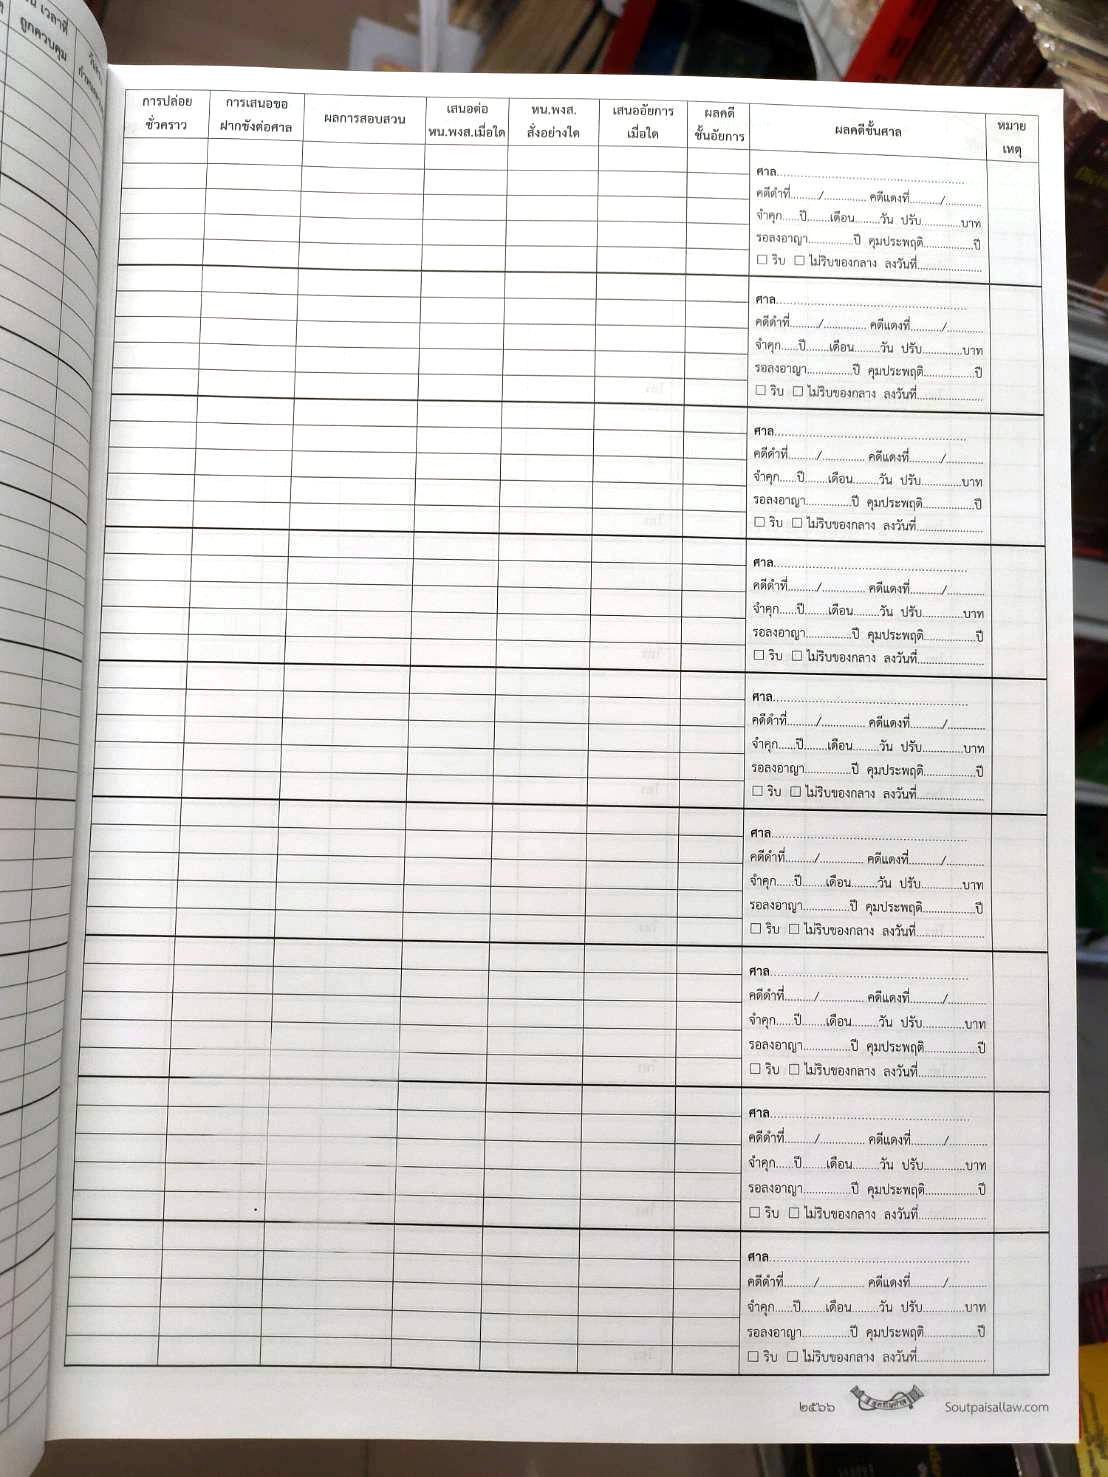 เวลาที่
ถูกควบคุม
การปล่อย
ชั่วคราว
การเสนอขอ
ฝากขังต่อศาล
ผลการสอบสวน
เสนอต่อ
หน.พงส.เมื่อใด
หน.พงส.
สั่งอย่างใด
เสนออัยการ
เมื่อใด
ผลคดี
ชั้นอัยการ
ผลคดีชั้นศาล
หมาย
เหตุ
ศาล....................................................
คดีดำที่........./.............. คดีแดงที่........./...........
จำคุก.....ปี.......เดือน........วัน ปรับ............บาท
รอลงอาญา..............ปี คุมประพฤติ...............ปี
☐ ริบ ☐ ไม่ริบของกลาง ลงวันที่....................
ศาล....................................................
คดีดำที่........./.............. คดีแดงที่........./...........
จำคุก.....ปี.......เดือน........วัน ปรับ............บาท
รอลงอาญา..............ปี คุมประพฤติ...............ปี
☐ ริบ ☐ ไม่ริบของกลาง ลงวันที่....................
ศาล....................................................
คดีดำที่........./.............. คดีแดงที่........./...........
จำคุก.....ปี.......เดือน........วัน ปรับ............บาท
รอลงอาญา..............ปี คุมประพฤติ...............ปี
☐ ริบ ☐ ไม่ริบของกลาง ลงวันที่....................
ศาล....................................................
คดีดำที่........./.............. คดีแดงที่........./...........
จำคุก.....ปี.......เดือน........วัน ปรับ............บาท
รอลงอาญา..............ปี คุมประพฤติ...............ปี
☐ ริบ ☐ ไม่ริบของกลาง ลงวันที่....................
ศาล....................................................
คดีดำที่........./.............. คดีแดงที่........./...........
จำคุก.....ปี.......เดือน........วัน ปรับ............บาท
รอลงอาญา..............ปี คุมประพฤติ...............ปี
☐ ริบ ☐ ไม่ริบของกลาง ลงวันที่....................
ศาล....................................................
คดีดำที่........./.............. คดีแดงที่........./...........
จำคุก.....ปี.......เดือน........วัน ปรับ............บาท
รอลงอาญา..............ปี คุมประพฤติ...............ปี
☐ ริบ ☐ ไม่ริบของกลาง ลงวันที่....................
ศาล....................................................
คดีดำที่........./.............. คดีแดงที่........./...........
จำคุก.....ปี.......เดือน........วัน ปรับ............บาท
รอลงอาญา..............ปี คุมประพฤติ...............ปี
☐ ริบ ☐ ไม่ริบของกลาง ลงวันที่....................
ศาล....................................................
คดีดำที่........./.............. คดีแดงที่........./...........
จำคุก.....ปี.......เดือน........วัน ปรับ............บาท
รอลงอาญา..............ปี คุมประพฤติ...............ปี
☐ ริบ ☐ ไม่ริบของกลาง ลงวันที่....................
ศาล....................................................
คดีดำที่........./.............. คดีแดงที่........./...........
จำคุก.....ปี.......เดือน........วัน ปรับ............บาท
รอลงอาญา..............ปี คุมประพฤติ...............ปี
☐ ริบ ☐ ไม่ริบของกลาง ลงวันที่....................
๒๕๖๖ สูตรไพศาล Soutpaisallaw.com